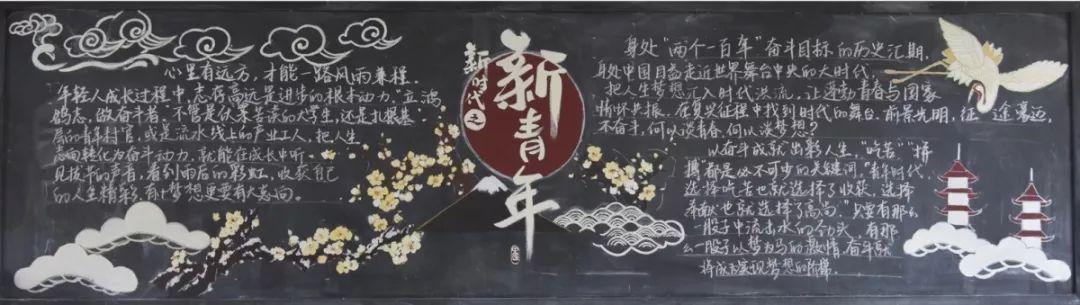 心里有远方，才能一路风雨兼程。
年轻人成长过程中，志存高远是进步的根本动力。"立鸿
鹄志，做奋斗者，不管是伏案苦读的大学生，还是扎根基
层的青年村官，或是流水线上的产业工人，把人生
志向转化为奋斗动力，就能在成长中听
见拔节的声音，看到雨后的彩虹，收获自己
的人生精彩，有梦想更要有大志向。
新时代之
新青年
身处"两个一百年"奋斗目标的历史汇期，
身处中国日益走近世界舞台中央的大时代，
把人生梦想汇入时代洪流，让逐梦青春与国家
情怀共振，在复兴征程中找到时代的舞台，前景光明，征途漫迈，
不奋斗，何以谈青春，何以谈梦想？
以奋斗成就出彩人生，"吃苦""拼
搏"都是必不可少的关键词，"青年时代，
选择吃苦也就选择了收获，选择
奉献也就选择了高尚。"只要有那么
一股子中流击水的劲头，有那
么一股子以梦为马的激情，青年就
将成为实现梦想的阶梯